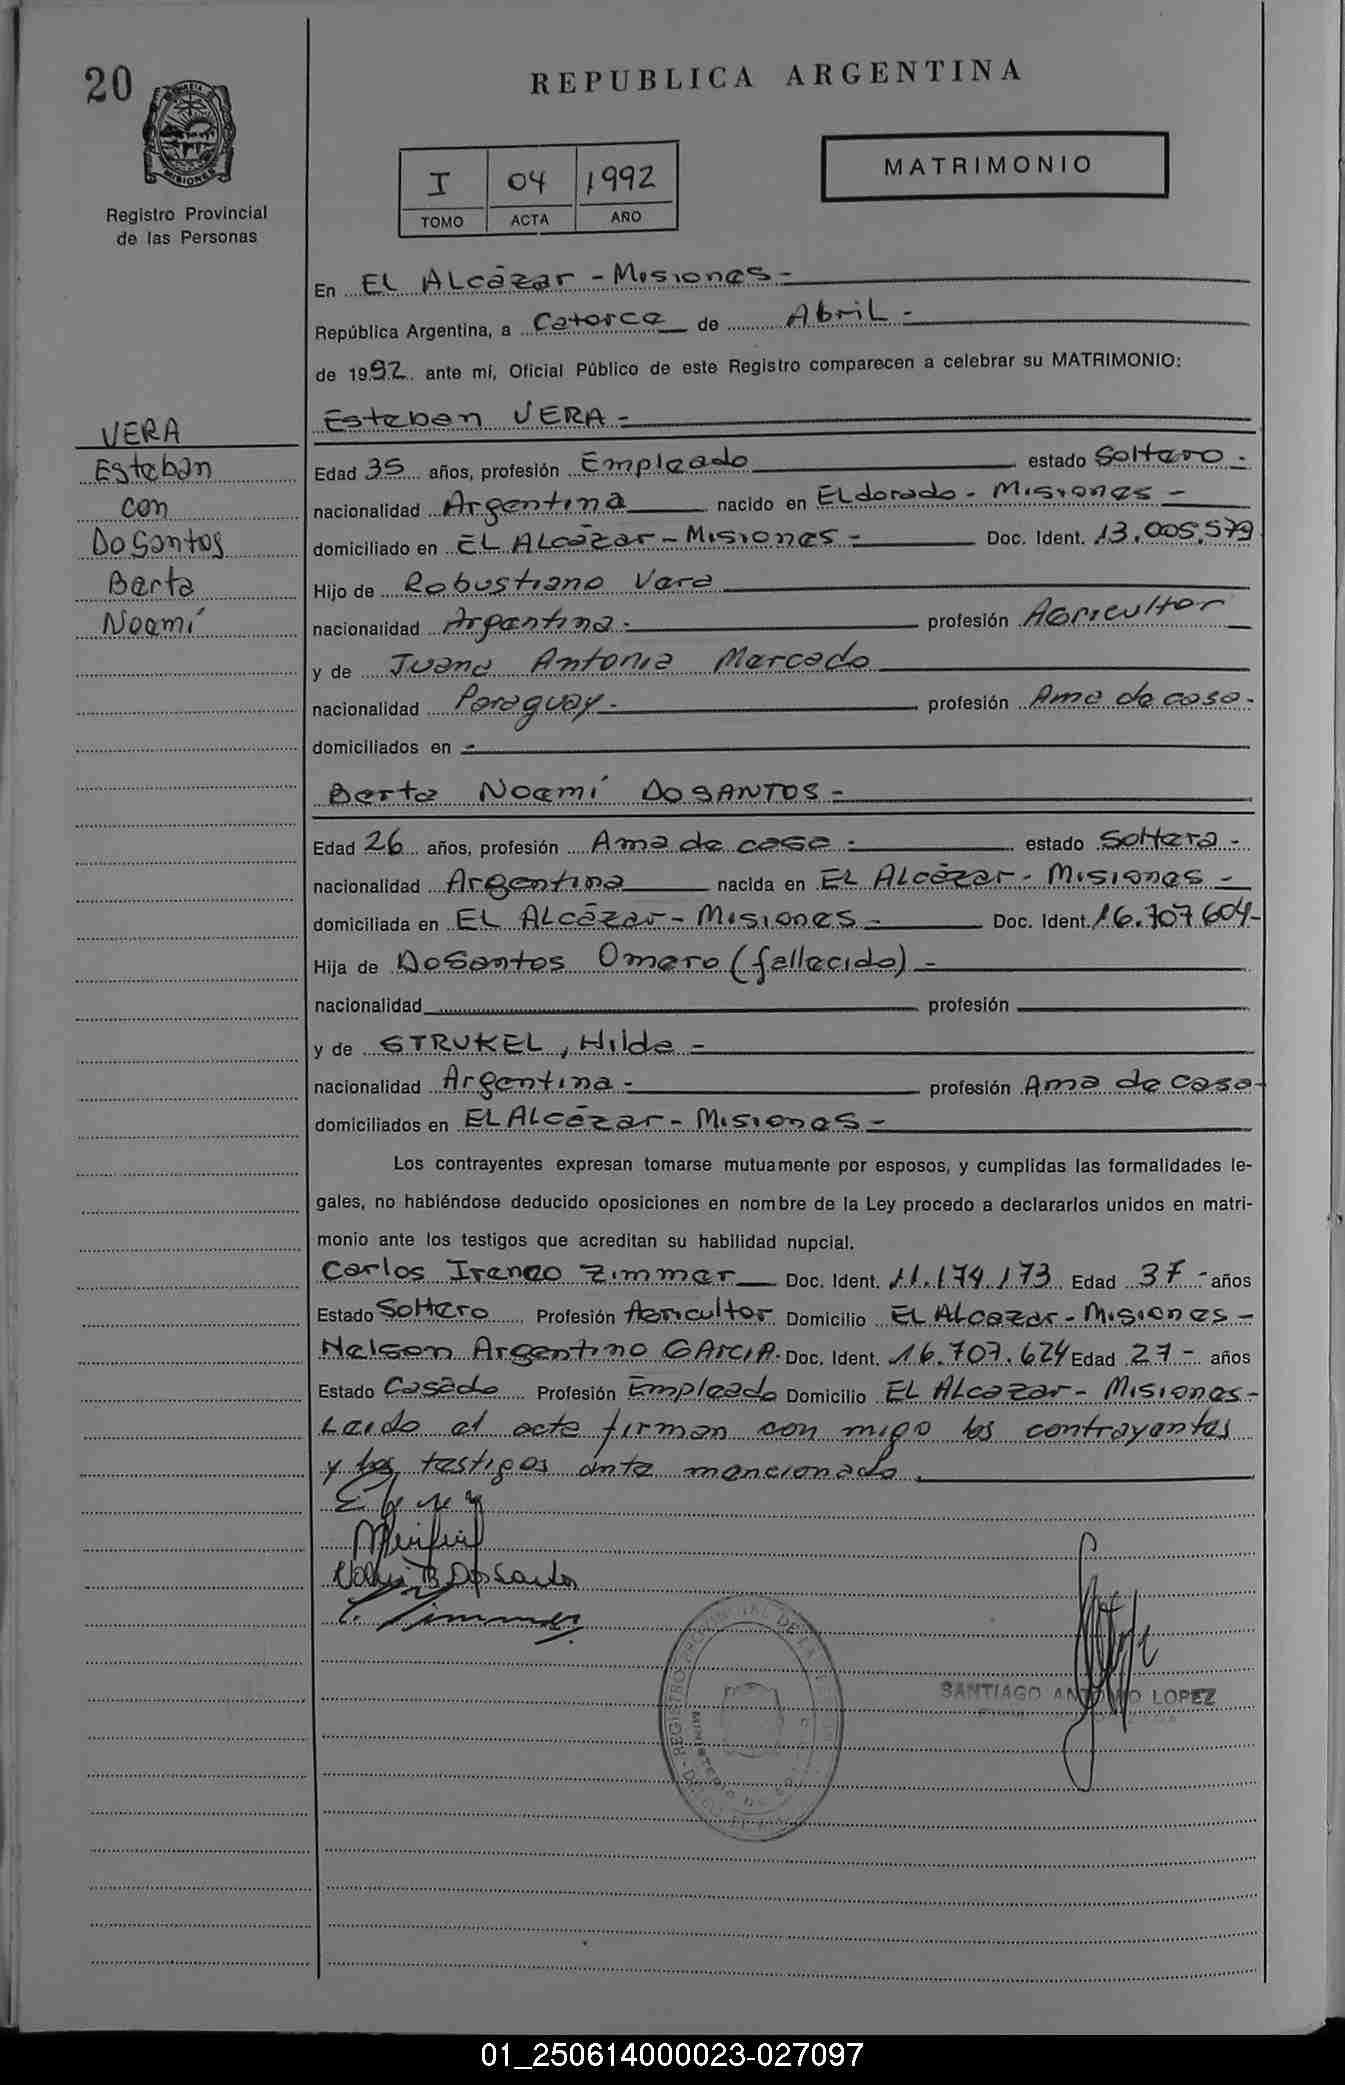 20
REPUBLICA ARGENTINA
MISIONES
Registro Provincial
de las Personas
I 04 1992
TOMO ACTA AÑO
MATRIMONIO
En El Alcázar - Misiones -
República Argentina, a Catorce de Abril -
de 1992 ante mí, Oficial Público de este Registro comparecen a celebrar su MATRIMONIO:
Esteban VERA -
VERA
Esteban
con
DoSantos
Berta
Noemí
Edad 35 años, profesión Empleado estado Soltero -
nacionalidad Argentina nacido en Eldorado - Misiones -
domiciliado en El Alcázar - Misiones - Doc. Ident. 13.005.579
Hijo de Robustiano Vera
nacionalidad Argentina - profesión Agricultor
y de Juana Antonia Mercado
nacionalidad Paraguay - profesión Ama de casa -
domiciliados en -
Berta Noemí DOSANTOS -
Edad 26 años, profesión Ama de casa - estado Soltera -
nacionalidad Argentina nacida en El Alcázar - Misiones -
domiciliada en El Alcázar - Misiones - Doc. Ident. 16.707.604-
Hija de DoSantos Omero (fallecido) -
nacionalidad profesión
y de STRUKEL, Hilda -
nacionalidad Argentina - profesión Ama de casa -
domiciliados en El Alcázar - Misiones -
Los contrayentes expresan tomarse mutuamente por esposos, y cumplidas las formalidades le-
gales, no habiéndose deducido oposiciones en nombre de la Ley procedo a declararlos unidos en matri-
monio ante los testigos que acreditan su habilidad nupcial.
Carlos Ireneo Zimmer Doc. Ident. 11.174.173 Edad 37 - años
Estado Soltero Profesión Agricultor Domicilio El Alcazar - Misiones -
Nelson Argentino GArcIA - Doc. Ident. 16.707.624 Edad 27 - años
Estado Casado Profesión Empleado Domicilio El Alcazar - Misiones -
Leido el acta firman con migo los contrayentes
y los testigos ante mencionado.
C. Zimmer
SANTIAGO ANTONIO LOPEZ
01_250614000023-027097